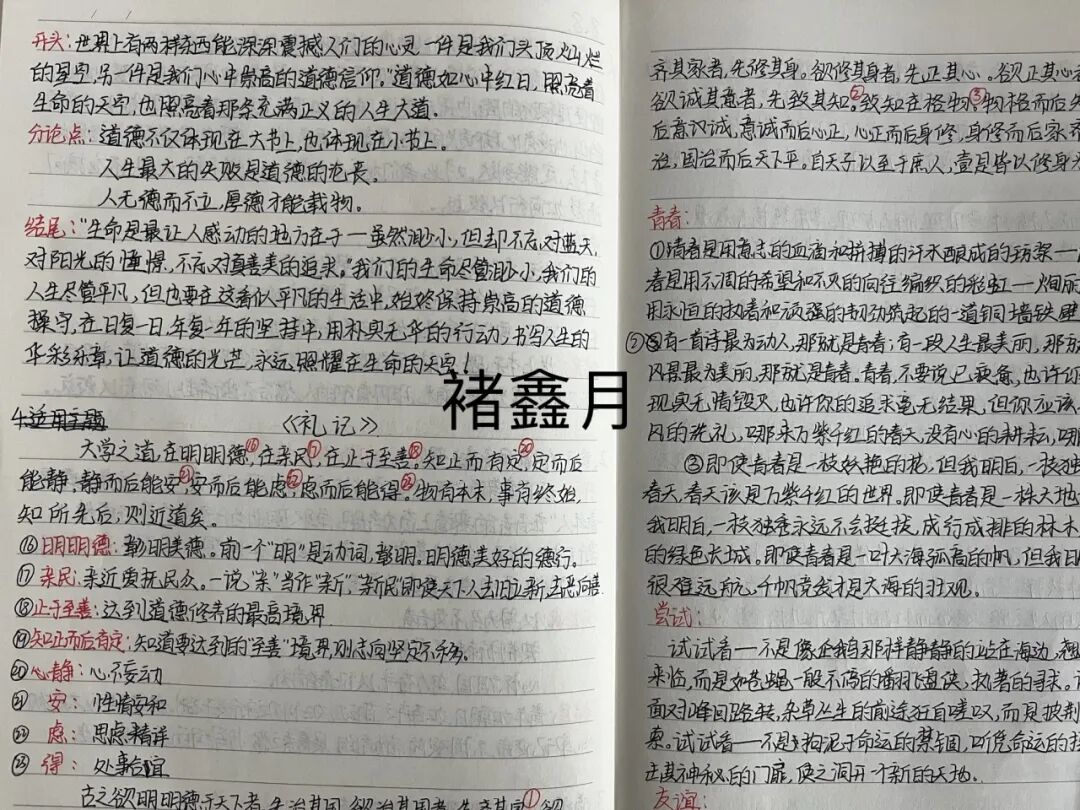 开头:世界上有两样东西能深深震撼人们的心灵,一件是我们头顶灿烂
的星空,另一件是我们心中崇高的道德信仰。"道德如心中红日,照亮着
生命的天空,也照亮着那条充满正义的人生大道。
分论点:道德不仅体现在大节上,也体现在小节上。
人生最大的失败是道德的沦丧。
人无德而不立,厚德才能载物。
结尾:"生命是最让人感动的地方在于——虽然渺小,但却不忘对蓝天,
对阳光的憧憬,不忘对真善美的追求。"我们的生命尽管渺小,我们的
人生尽管平凡,但也要在这看似平凡的生活中,始终保持崇高的道德
操守,在日复一日,年复一年的坚持中,用朴实无华的行动,书写人生的
华彩乐章,让道德的光芒,永远照耀在生命的天空!
4.适用主题
《礼记》
大学之道,在明明德⑯,在亲民⑰,在止于至善⑱。知止而有定⑳,定而后
能静,静而后能安㉑,安而后能虑㉒,虑而后能得㉓。物有本末,事有终始,
知所先后,则近道矣。
⑯明明德:彰明美德。前一个"明"是动词,彰明。明德美好的德行。
⑰亲民:亲近爱抚民众。一说,"亲"当作"新","新民"即使天下人去旧立新,去恶向善
⑱止于至善:达到道德修养的最高境界
⑲知止而后有定:知道要达到的"至善"境界,则志向坚定不移。
⑳心静:心不妄动
㉑安:性情安和
㉒虑:思虑精详
㉓得:处事合宜
古之欲明明德于天下者,先治其国,欲治其国者,先齐其家①欲
齐其家者,先修其身。欲修其身者,先正其心。欲正其心
欲诚其意者,先致其知②。致知在格物③。物格而后
后意识诚,意诚而后心正,心正而后身修,身修而后家
治,国治而后天下平。自天子以至于庶人,壹是皆以修身
青春:
①青春是用意志的血滴和拼搏的汗水酿成的琼浆——
春是用不凋的希望和不灭的向往编织的彩虹——绚丽
用永恒的执着和顽强的韧劲筑起的一道铜墙铁壁
②有一首诗最为动人,那就是青春;有一段人生最美丽,那
风景最为美丽,那就是青春。青春,不要说已疲惫,也许你
现实无情毁灭,也许你的追求毫无结果,但你应该
风的洗礼,哪来万紫千红的春天,没有心的耕耘,哪
③即使青春是一枝妖艳的花,但我明白,一枝独
春天,春天该是万紫千红的世界。即使青春是一株大地
我明白,一枝独秀永远不会挺拔,成行成排的林木
的绿色长城。即使青春是一叶大海孤高的帆,但我
很难远航,千帆竞发才是大海的壮观。
尝试:
试试看——不是像企鹅那样静静的站在海边,翘
来临,而是如苍蝇一般不停的翻飞盘旋,执着的寻求,
面对峰回路转,杂草丛生的前途枉自嗟叹,而是披荆
索。试试看——不是拘泥于命运的禁锢,听凭命运的
击其神秘的门扉,使之洞开一个新的天地。
友谊:
褚鑫月